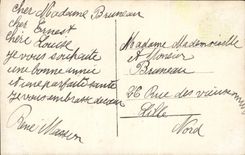 Cher Madame Bruneau
cher Ernest
Chère Louise
je vous souhaite
une bonne année
et une parfaite santé
je vous embrasse de cœur
René Masson
Madame Mademoiselle
et Monsieur
Bruneau
26 Rue des vieux murs
Lille
Nord